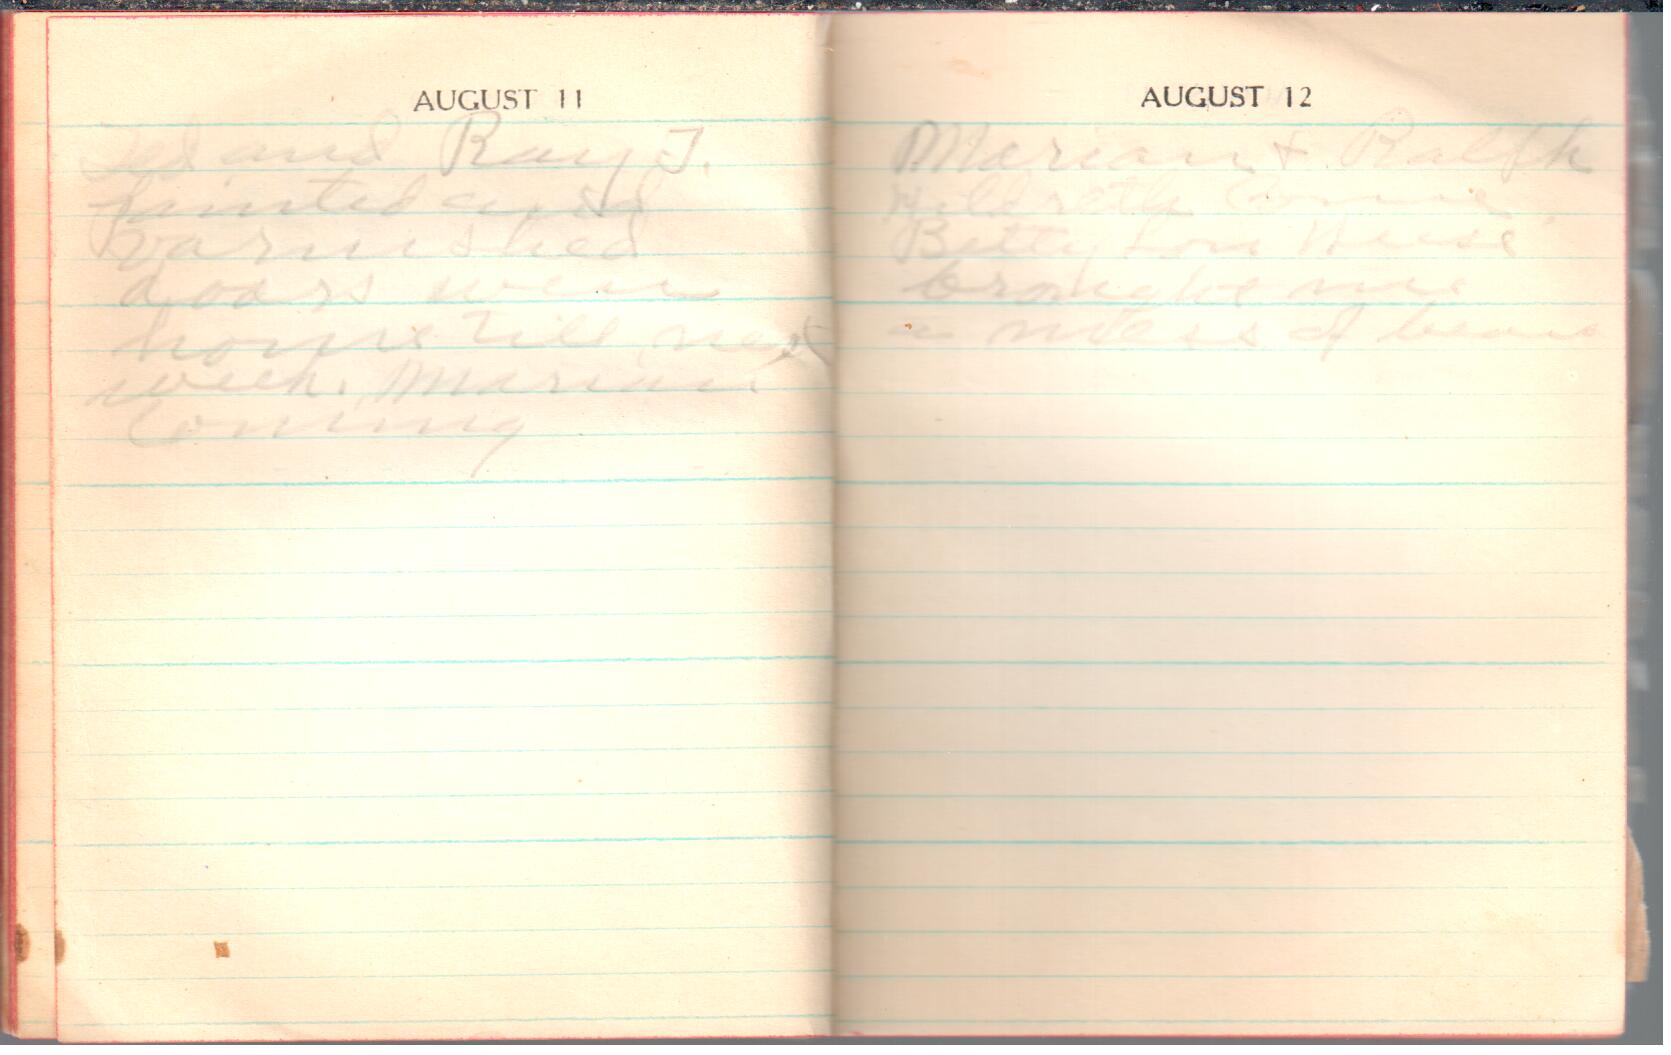 AUGUST 11
Ted and Ray J.
painted and
varnished
doors went
home till next
week. Marian
Coming
AUGUST 12
Marian & Ralph
Hildreth Come.
Betty Lou Weese
brought me
a mess of beans